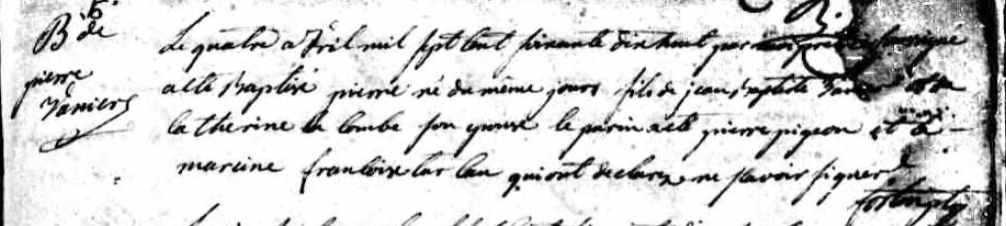 B. de
pierre
Le quatre avril mil sept cent soixante dix huit par soussigné
a été Baptisé pierre né du même jours fils de jean baptiste et de
Catherine la Combe son epouse le parin a été pierre pigeon et la
maraine francoise qui ont declarez ne savoir signer